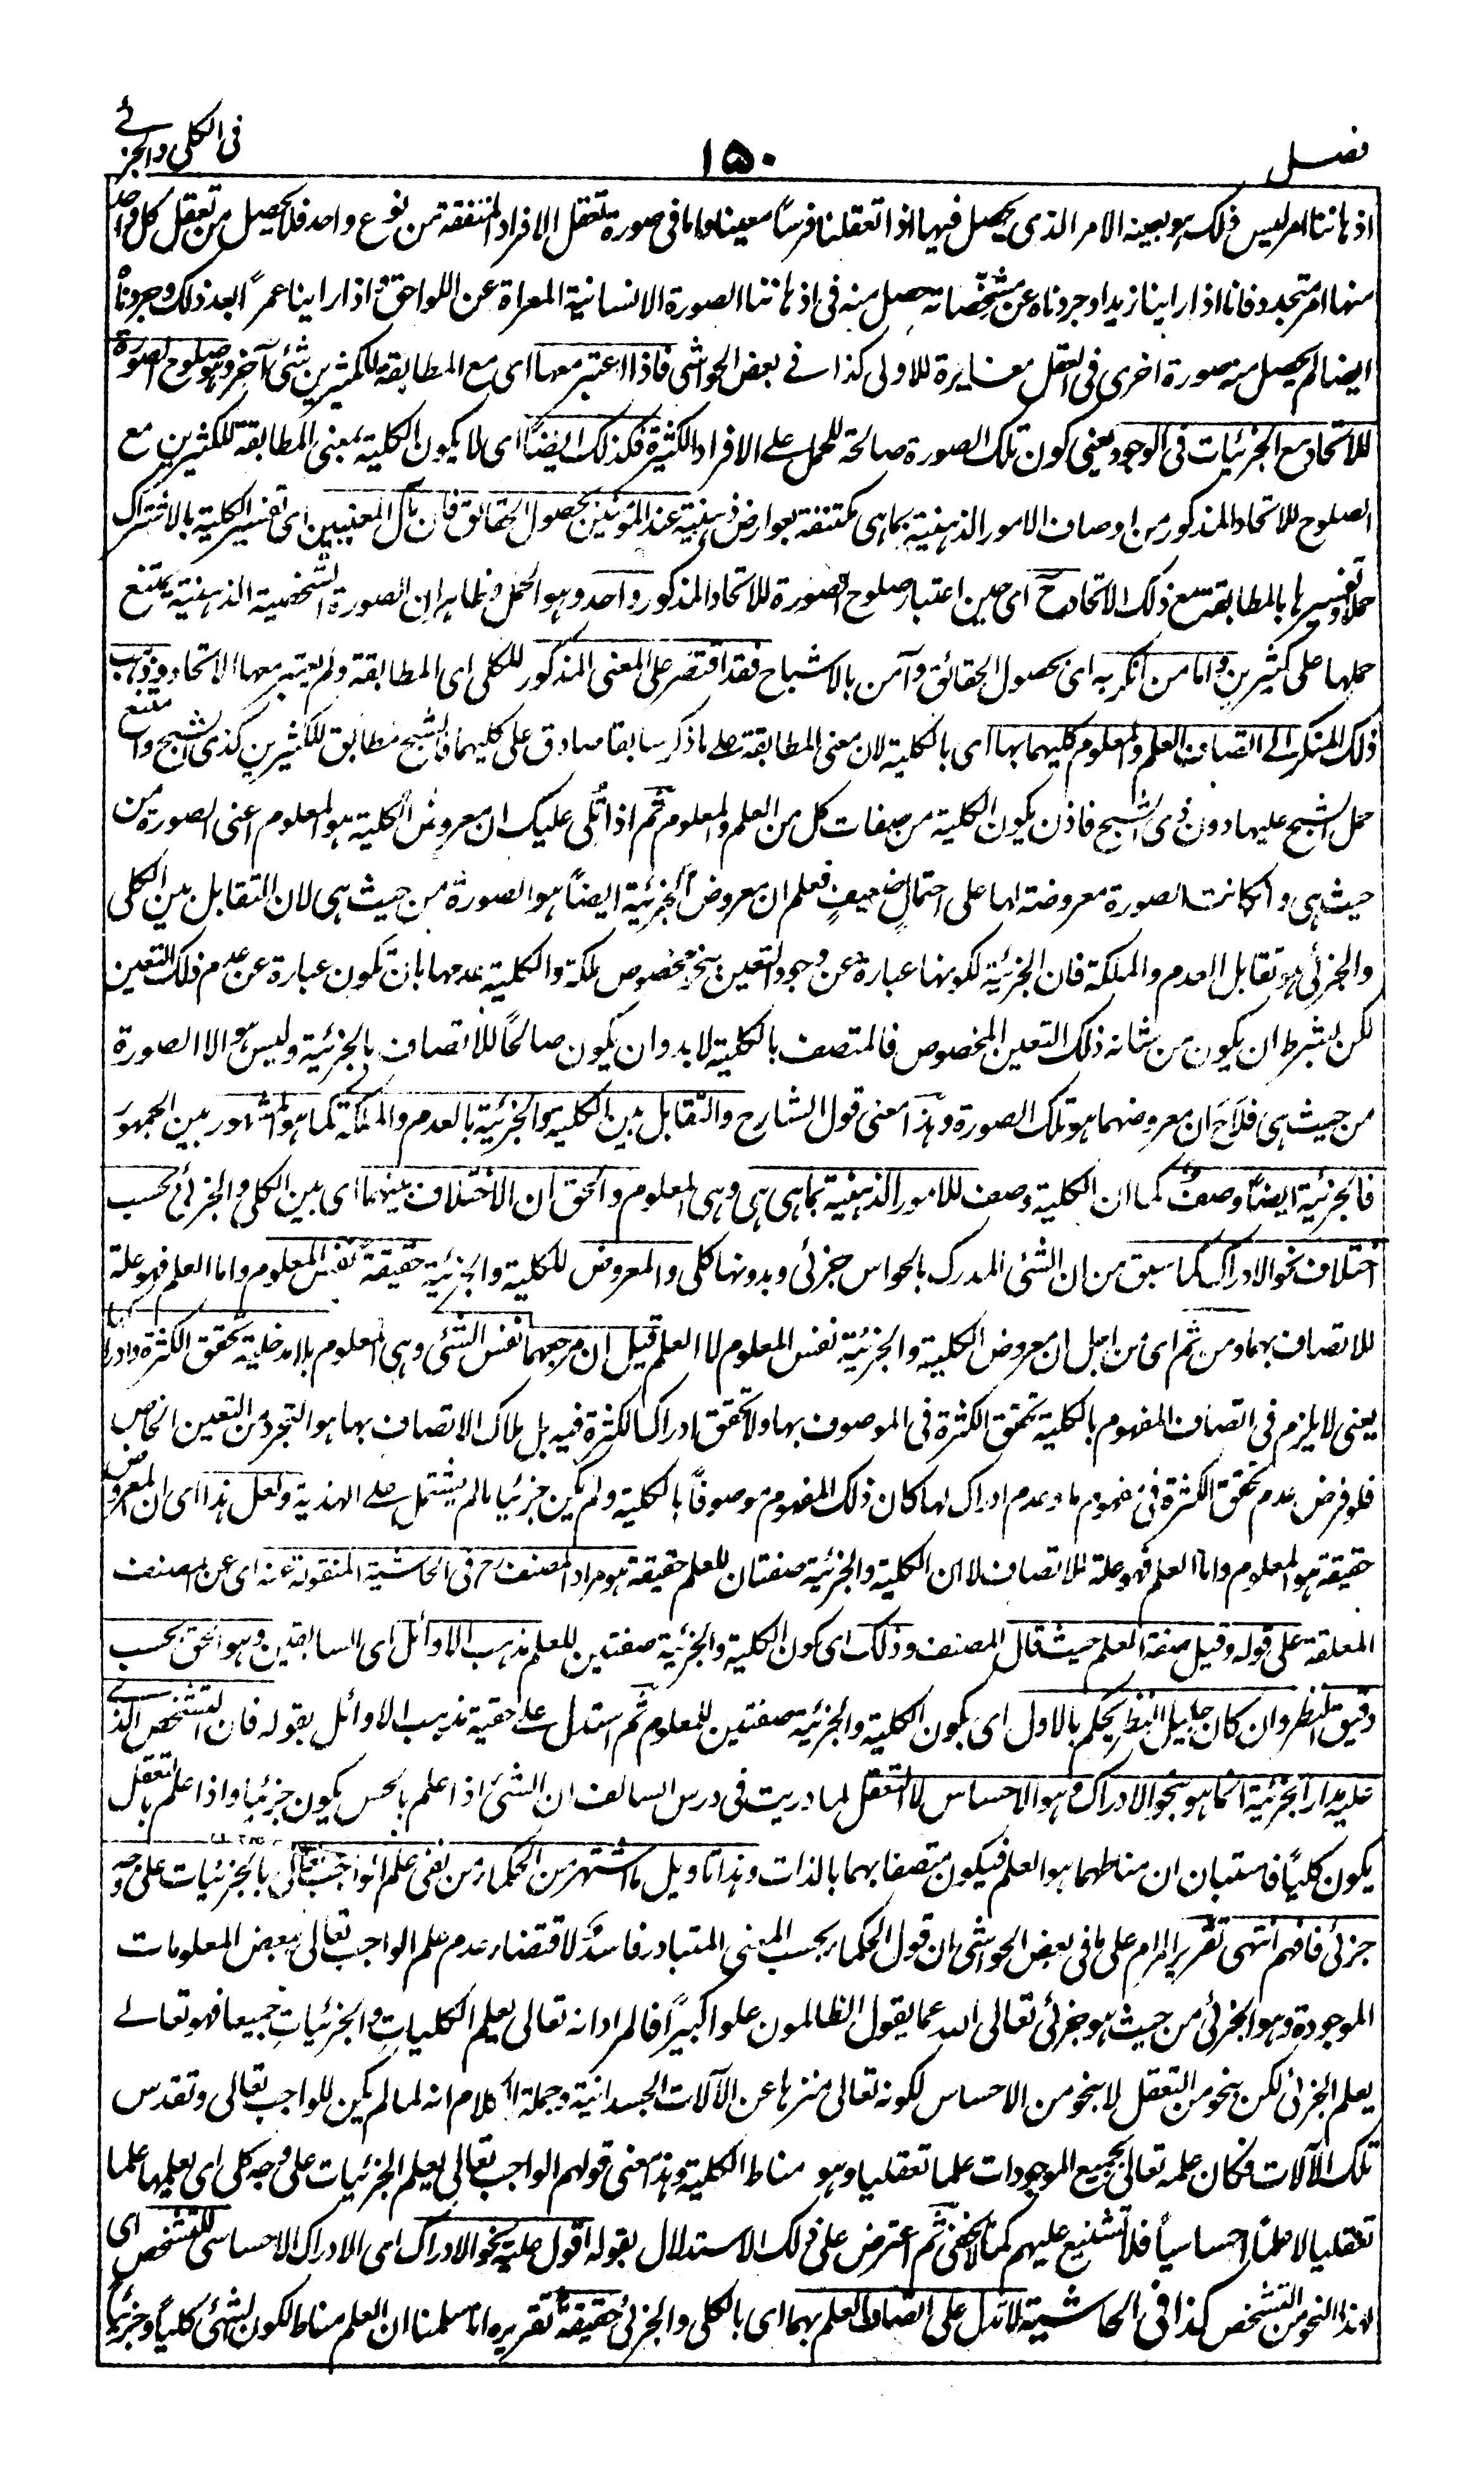 فصل ١٥٠ فى الكلى والجزئے
اذهاننا امر ليس ذلك هو بعينه الامر الذى يحصل فيها اذا تعقلنا فرسا معينا واما فى صورة تعقل الافراد المتفقة من نوع واحد فلا يحصل من تعقل كل واحد
منها امر متجدد فانا اذا راينا زيدا وجردناه عن مشخّصاته حصل منه فى اذهاننا الصورة الانسانية المعراة عن اللواحق واذا راينا عمرًا بعد ذلك وجردناه
ايضا لم يحصل منه صورة اخرى فى العقل مغايرة للاولى كذا فے بعض الحواشى فاذا اعتبر معها اى مع المطابقة للكثيرين شئ آخر وهو صلوح الصورة
للاتحاد مع الجزئيات فى الوجود يعنى كون تلك الصورة صالحة للحمل على الافراد الكثيرة فكذلك ايضًا اى لا يكون الكلية بمعنى المطابقة للكثيرين مع
الصلوح للاتحاد المذكور من اوصاف الامور الذهنية بما هى مكتنفة بعوارض ذهنية عند المؤمنين بحصول الحقائق فان مآل المعنيين اى تفسير الكلية بالاشتراك
حملا وتفسيرها بالمطابقة مع ذلك الاتحاد ح اى حين اعتبار صلوح الصورة للاتحاد المذكور واحد وهو الحمل وظاهر ان الصورة الشخصية الذهنية يمتنع
حملها على كثيرين واما من انكر به اى بحصول الحقائق وآمن بالاشباح فقد اقتصر على المعنى المذكور للكلى اى المطابقة ولم يعتبر معها الاتحاد وذهب
ذلك المنكر الے اتصاف العلم والمعلوم كليهما بها اى بالكلية لان معنى المطابقة على ما ذكر سابقا صادق على كليهما فالشبح مطابق للكثيرين كذى الشبح وان يمتنع
حمل الشبح عليها دون ذى الشبح فاذن يكون الكلية من صفات كل من العلم والمعلوم ثم اذا تُلى عليك ان معروض الكلية هو المعلوم اعنى الصورة من
حيث هى وان كانت الصورة معروضة لها على احتمالٍ ضعيفٍ فعلم ان معروض الجزئية ايضاً هو الصورة من حيث هى لان التقابل بين الكلى
والجزئى هو تقابل العدم والملكة فان الجزئية لكونها عبارة عن وجود التعين بنحو مخصوص ملكة والكلية عدمها بان تكون عبارة عن عدم ذلك التعين
لكن بشرط ان يكون من شانه ذلك التعين المخصوص فالمتصف بالكلية لا بد وان يكون صالحًا للاتصاف بالجزئية وليس هو الا الصورة
من حيث هى فلاح ان معروضهما هو تلك الصورة وهذا معنى قول الشارح والتقابل بين الكلية والجزئية بالعدم والملكة كما هو المشهور بين الجمهور
فالجزئية ايضًا وصف كما ان الكلية وصف للامور الذهنية بما هى هى وهى المعلوم والحق ان الاختلاف بينهما اى بين الكلى والجزئى بحسب
اختلاف نحو الادراك كما سبق من ان الشئ المدرك بالحواس جزئى وبدونها كلى والمعروض للكلية والجزئية حقيقةً نفس المعلوم واما العلم فهو علة
للاتصاف بهما ومن ثم اى من اجل ان معروض الكلية والجزئية نفس المعلوم لا العلم قيل ان مرجعهما نفس الشئ وهى المعلوم بلا مدخلية تحقق الكثرة وادراكها
يعنى لا يلزم فى اتصاف المفهوم بالكلية تحقق الكثرة فى الموصوف بها ولا تحقق ادراك الكثرة فيه بل ملاك الاتصاف بها هو التجرد من التعين الخاص
فلو فرض عدم تحقق الكثرة فى مفهوم ما وعدم ادراك لها كان ذلك المفهوم موصوفًا بالكلية ولم يكن جزئيا ما لم يشتمل على الهذية ولعل هذا اى ان المعروض
حقيقة هو المعلوم واما العلم فهو علة للاتصاف لا ان الكلية والجزئية صفتان للعلم حقيقة هو مراد المصنف رح فى الحاشية المنقولة عنه اى عن المصنف
المعلقة على قوله وقيل صفة العلم حيث قال المصنف وذلك اى كون الكلية والجزئية صفتين للعلم مذهب الاوائل اى السابقين وهو الحق بحسب
دقيق النظر وان كان جليل النظر يحكم بالاول اى بكون الكلية والجزئية صفتين للمعلوم ثم استدل على حقية مذهب الاوائل بقوله فان التشخص الذے
عليه مدار الجزئية انما هو بنحو الادراك وهو الاحساس لا التعقل لما دريت فى درس السالف ان الشئ اذا علم بالحس يكون جزئيا واذا علم بالتعقل
يكون كليًا فاستبان ان مناطهما هو العلم فيكون متصفا بهما بالذات وهذا تاويل ما اشتهر من الحكماء من نفى علم الواجب تعالى بالجزئيات على وجه
جزئى فافهم انتهى تقرير المرام على ما فى بعض الحواشى ان قول الحكماء بحسب المعنى المتبادر فاسدٌ لاقتضاء عدم علم الواجب تعالى ببعض المعلومات
الموجودة وهو الجزئى من حيث هو جزئى تعالى الله عما يقول الظالمون علوا كبيرًا فالمراد انه تعالى يعلم الكلياتِ والجزئياتِ جميعا فهو تعالے
يعلم الجزئى لكن بنحو من التعقل لا بنحو من الاحساس لكونه تعالى منزها عن الآلات الجسدانية وجملة الكلام انه لما لم يكن للواجب تعالى وتقدس
تلك الآلات فكان علمه تعالى بجميع الموجودات علما تعقليا وهو مناط الكلية وهذا معنى قولهم الواجب تعالى يعلم الجزئيات على وجه كلى اى يعلمها علما
تعقليا لا علمًا احساسياً فلا تشنيع عليهم كما لا يخفى ثم اعترض على ذلك الاستدلال بقوله اقول علية نحو الادراك اى الادراك الاحساسى للتشخص اى
لهذا النحو من التشخص كذا فى الحاشية لا تدل على اتصاف العلم بهما اى بالكلى والجزئى حقيقةً تقريره انا سلمنا ان العلم مناط لكون الشئ كلياً وجزئيا